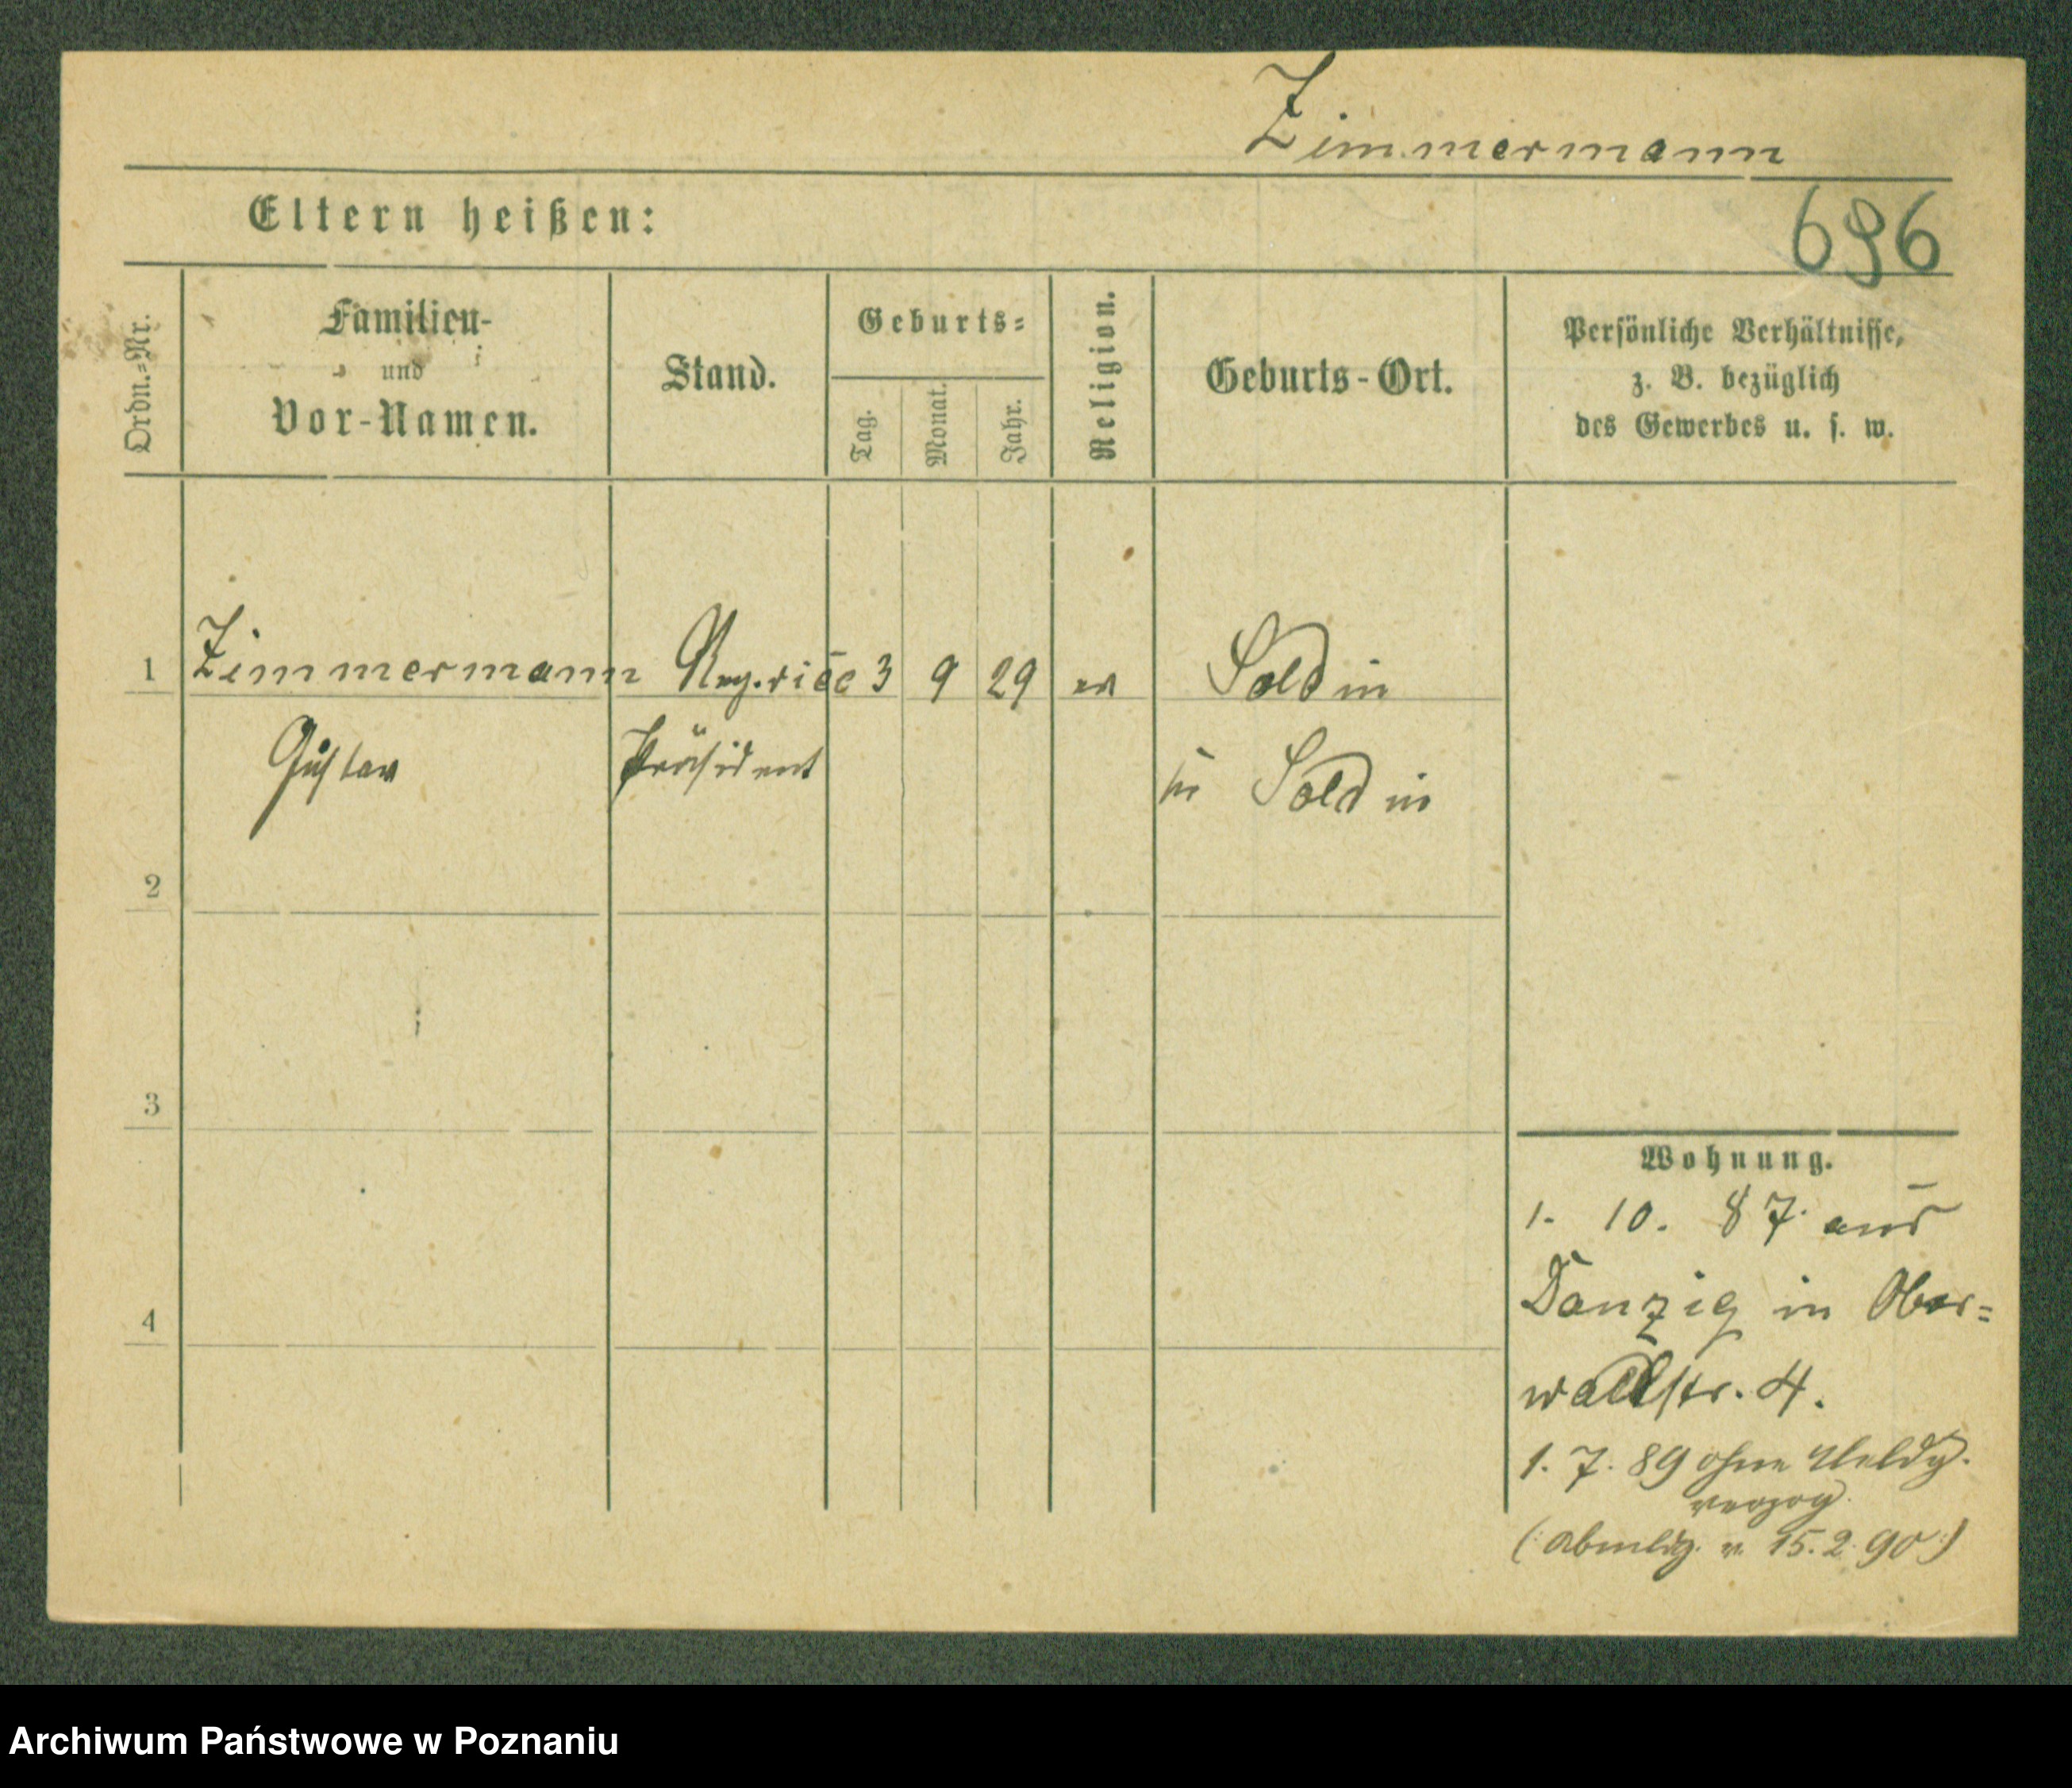 Zimmermann
Eltern heißen:
696
Ordn.-Nr.
Familien-
und
Vor-Namen.
Stand.
Geburts-
Tag.
Monat.
Jahr.
Religion.
Geburts-Ort.
Persönliche Verhältnisse,
z. B. bezüglich
des Gewerbes u. s. w.
1 Zimmermann 3 9 29 ev Soldin
Gustav Präsident in Soldin
2
3
4
Wohnung.
1. 10. 87. aus
Danzig in Ober-
wallstr. 4.
1. 7. 89 ohne Meldg.
verzog.
(: Abmldg. v. 15. 2. 90 :)
Archiwum Państwowe w Poznaniu